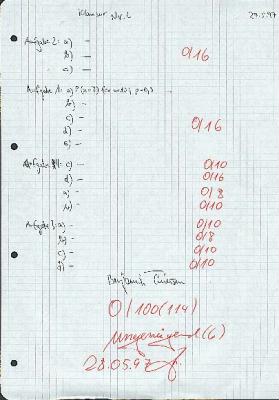 Klausur Nr. 2 29.5.97
Aufgabe 2: a) —
b) — 0/16
c) —
Aufgabe 1: a) P
b) —
c) —
d) — 0/16
e) —
Aufgabe 4: c) — 0/10
d) — 0/16
a) — 0/8
b) — 0/10
Aufgabe 3: a) — 0/10
b) — 0/8
c) — 0/10
d) — 0/10
0/100(114)
ungenügend (6)
28.05.97